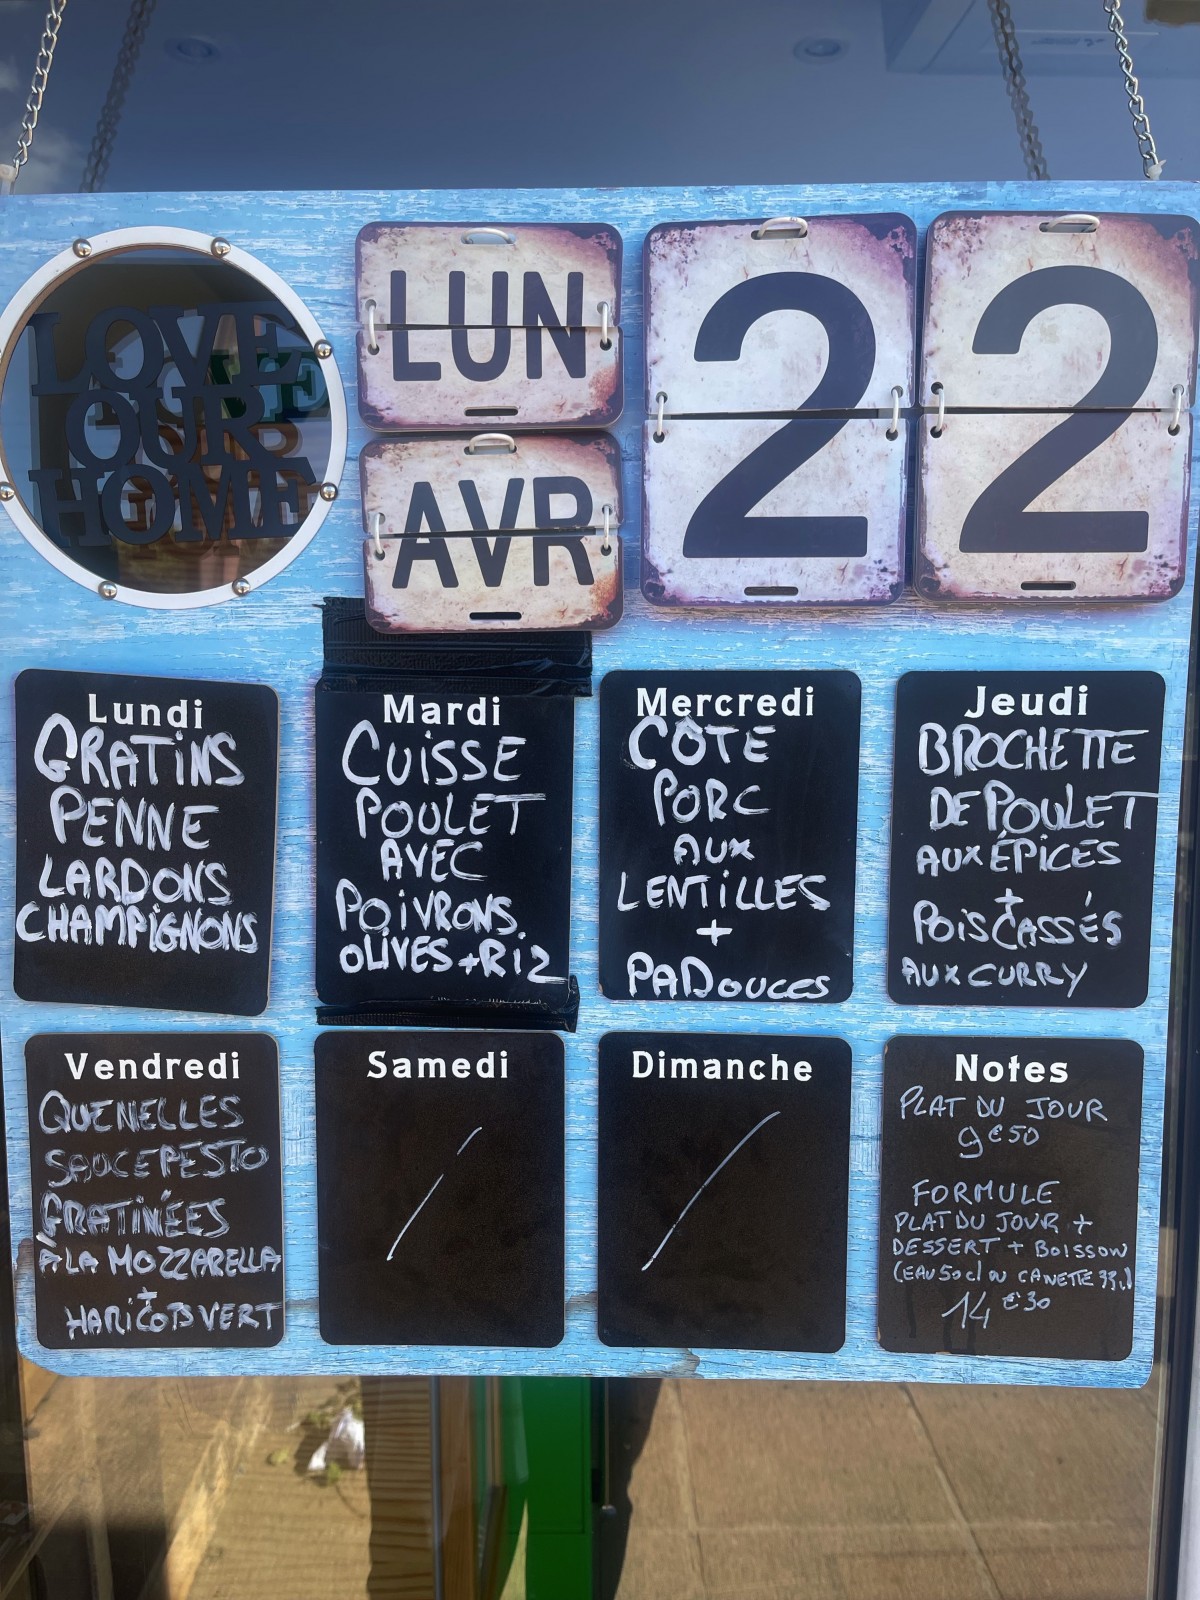 LOVE
OUR
HOME
LUN
AVR
22
Lundi
GRATINS
PENNE
LARDONS
CHAMPIGNONS
Mardi
CUISSE
POULET
AVEC
POIVRONS.
OLIVES+RIZ
Mercredi
CÔTE
PORC
AUX
LENTILLES
+
PADOUCES
Jeudi
BROCHETTE
DE POULET
AUX ÉPICES
+
POIS CASSÉS
AUX CURRY
Vendredi
QUENELLES
SAUCE PESTO
GRATINÉES
À LA MOZZARELLA
+
HARICOTS VERT
Samedi
/
Dimanche
/
Notes
PLAT DU JOUR
9€50
FORMULE
PLAT DU JOUR +
DESSERT + BOISSON
(EAU 50cl OU CANETTE 33cl)
14€30